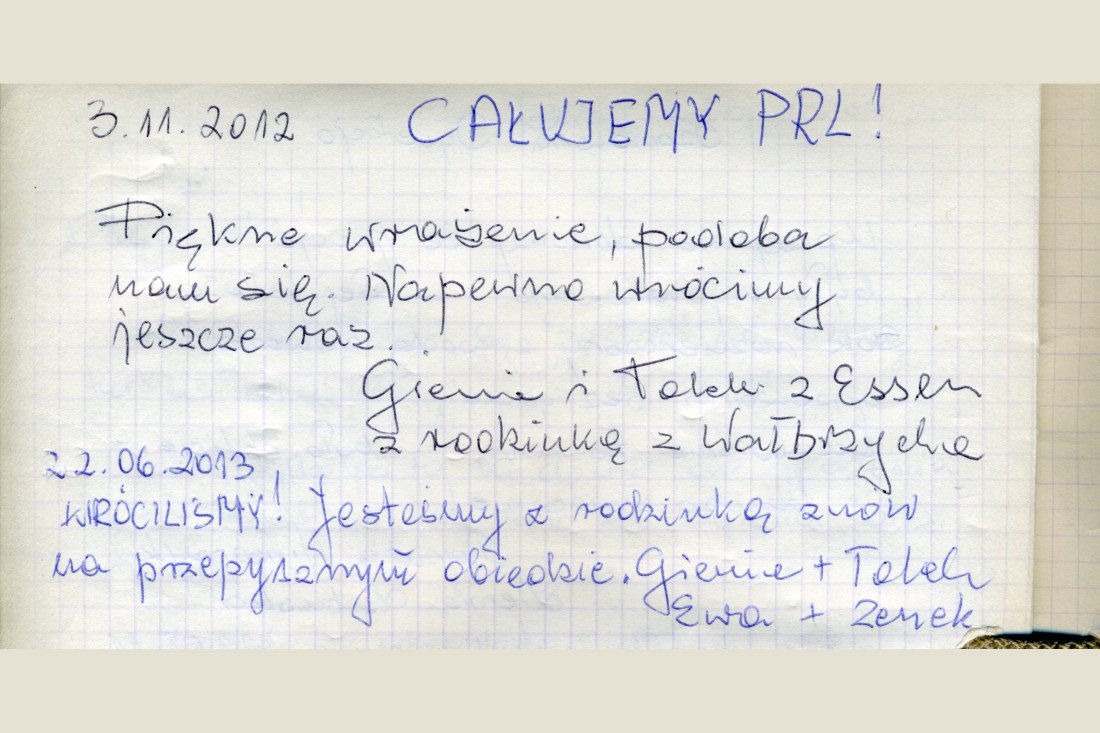 3.11.2012 CAŁUJEMY PRL!
Piękne wrażenie, podoba
nam się. Napewno wrócimy
jeszcze raz.
Gienia i Tolek z Essen
z rodzinką z Wałbrzycha
22.06.2013
WRÓCILIŚMY! Jesteśmy z rodzinką znów
na przepysznym obiedzie. Gienia + Tolek
Ewa + Zenek